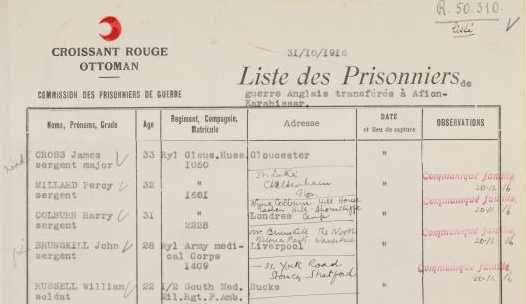 R. 50.310
CROISSANT ROUGE
OTTOMAN
COMMISSION DES PRISONNIERS DE GUERRE
31/10/1916
Liste des Prisonniers de
guerre Anglais transférés à Afion-
Karahissar.
Noms, Prénoms, Grade
Age
Regiment, Compagnie,
Matricule
Adresse
DATE
et lieu de capture
OBSERVATIONS
CROSS James 33 Ryl Glous.Huss. Gloucester "
sergent major 1050
MILLARD Percy 32 " Cheltenham " Communiqué famille
sergent 1661 20-12 16
COLBURN Harry 31 " Londres " Communiqué famille
sergent 2228 20-12 16
BRUNSKILL John 28 Ryl Army medi- Liverpool " Communiqué famille
sergent cal Corps 20-12 16
1409 York Road
Stoney Stratford
RUSSELL William 22 1/2 South Med. Bucks " Communiqué famille
soldat Bil.Rgt.F.Amb. 20-12 16